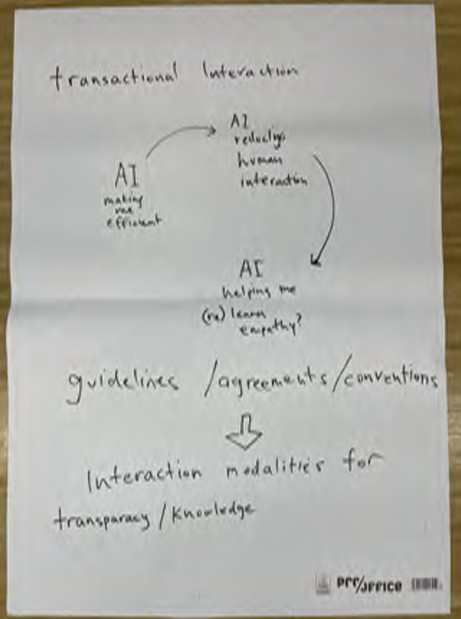 transactional Interaction
AI
making
me
efficient
AI
reducing
human
interaction
AI
helping me
(re) learn
empathy?
guidelines /agreements/conventions
Interaction modalities for
transparacy / Knowledge